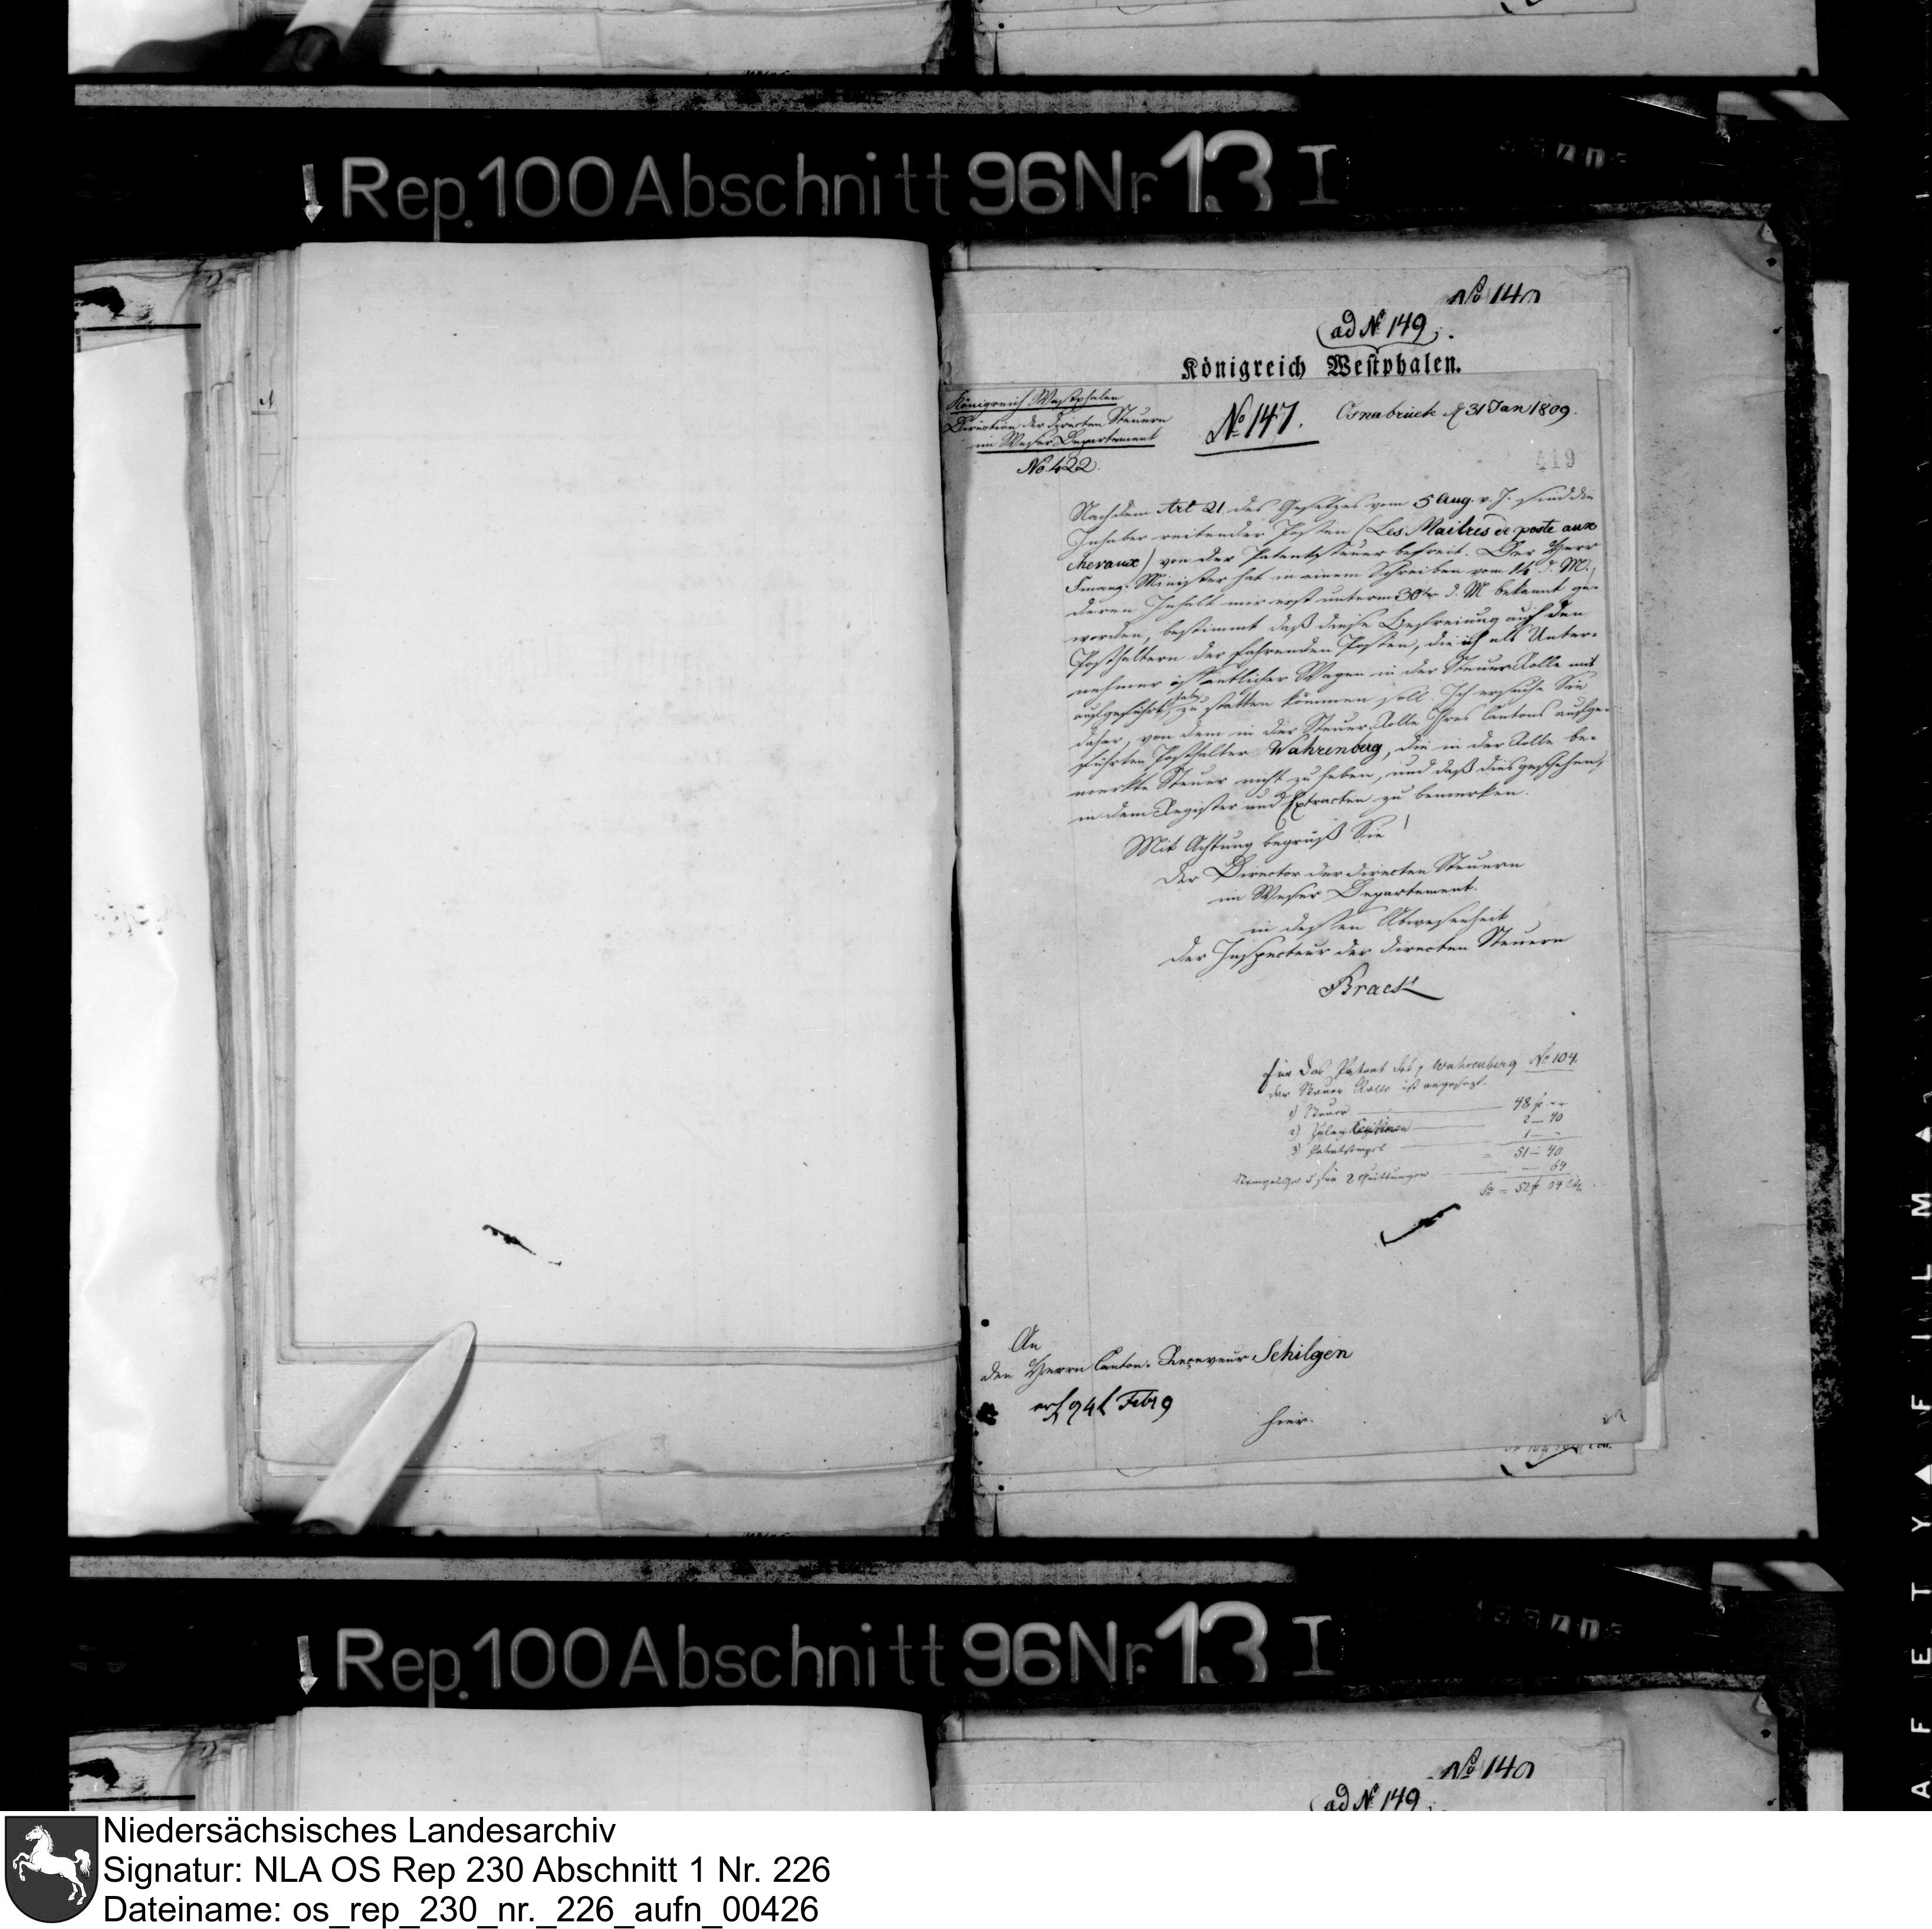 Rep. 100 Abschnitt 96 Nr. 13 I
No 149
ad No 149
Königreich Westphalen.
Königreich Westphalen
Direction der directen Steuern
im Weser Departement
No 422.
No 147.
Osnabrück d 31 Jan 1809.
419
Nach dem Art 21 des Gesetzes vom 5 Aug. v. J. sind die
Inhaber reitender Posten (Les Maitres de poste aux
chevaux) von der Patentsteuer befreit. Der Herr
Finanz-Minister hat in einem Schreiben vom 14 d. M.,
deren Inhalt mir erst unterm 30ten d. M bekannt ge-
worden, bestimmt daß diese Befreiung auch den
Posthaltern der fahrenden Posten, die ich als Unter-
nehmer öffentlicher Wagen in der Steuer-Rolle mit
aufgeführt habe, zu statten kommen soll. Ich ersuche Sie
daher, von dem in der Steuer-Rolle Ihres Cantons aufge-
führten Posthalter Wahrenberg, die in der Rolle be-
merkte Steuer nicht zu heben, und daß dies geschehen,
in dem Register und Extracten zu bemerken.
Mit Achtung begrüß Sie!
Der Director der directen Steuern
im Weser Departement.
in dessen Abwesenheit
Der Inspecteur der directen Steuern
Brack
für das Patent des p Wahrenberg No 104.
der Steuer Rolle ist angesezt.
1) Steuer 48 fr --
2) Zulag Centimen 2 - 40
3) Patentstempel 1 - -
51 - 40
Stempel für 2 Quittungen - 64
52 fr 04
An
den Herrn Canton-Receveur Schilgen
hier.
Febr 9
Rep. 100 Abschnitt 96 Nr. 13 I
No 149
ad No 149
AFETY FILM
Niedersächsisches Landesarchiv
Signatur: NLA OS Rep 230 Abschnitt 1 Nr. 226
Dateiname: os_rep_230_nr._226_aufn_00426